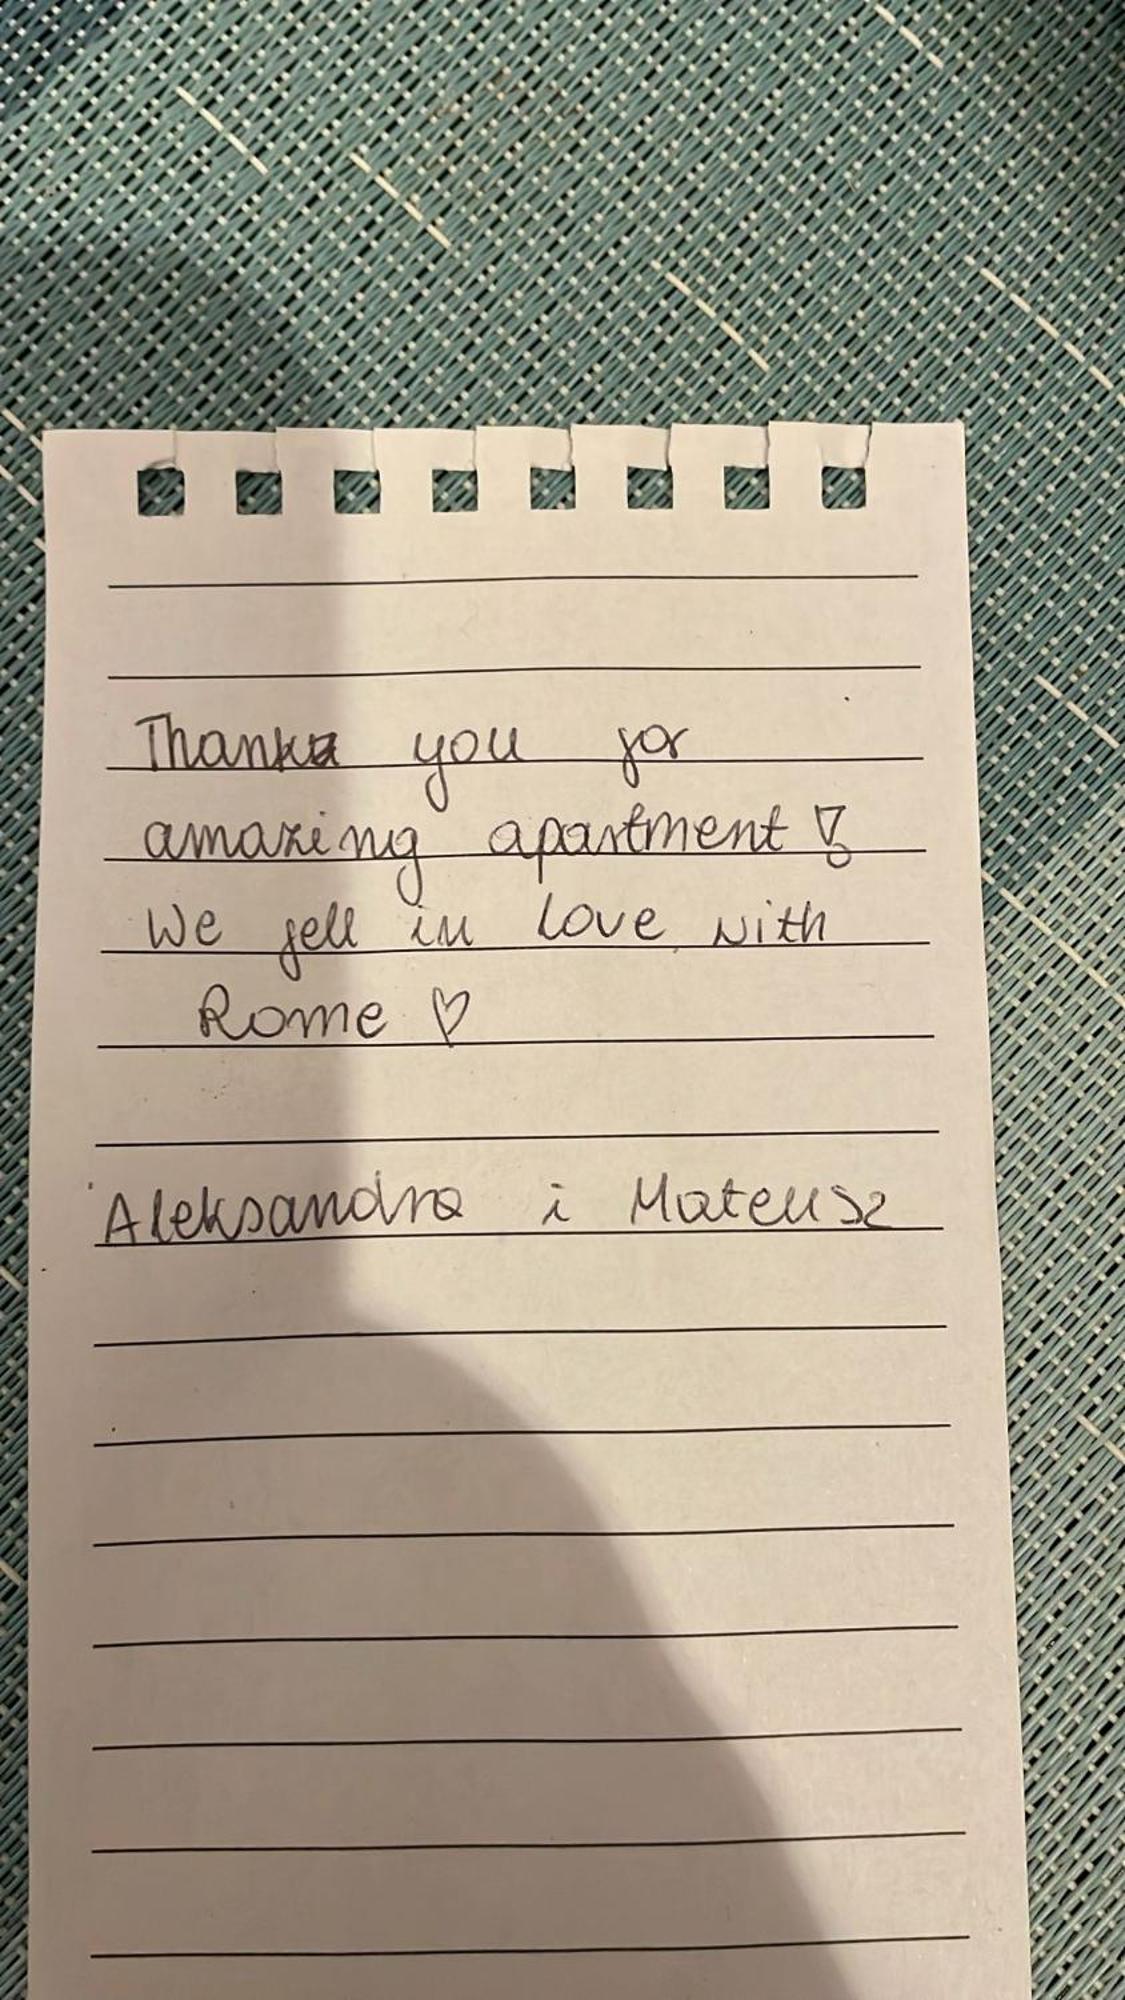 Thank you for
amazing apartment!
We fell in love with
Rome ♡
Aleksandra i Mateusz